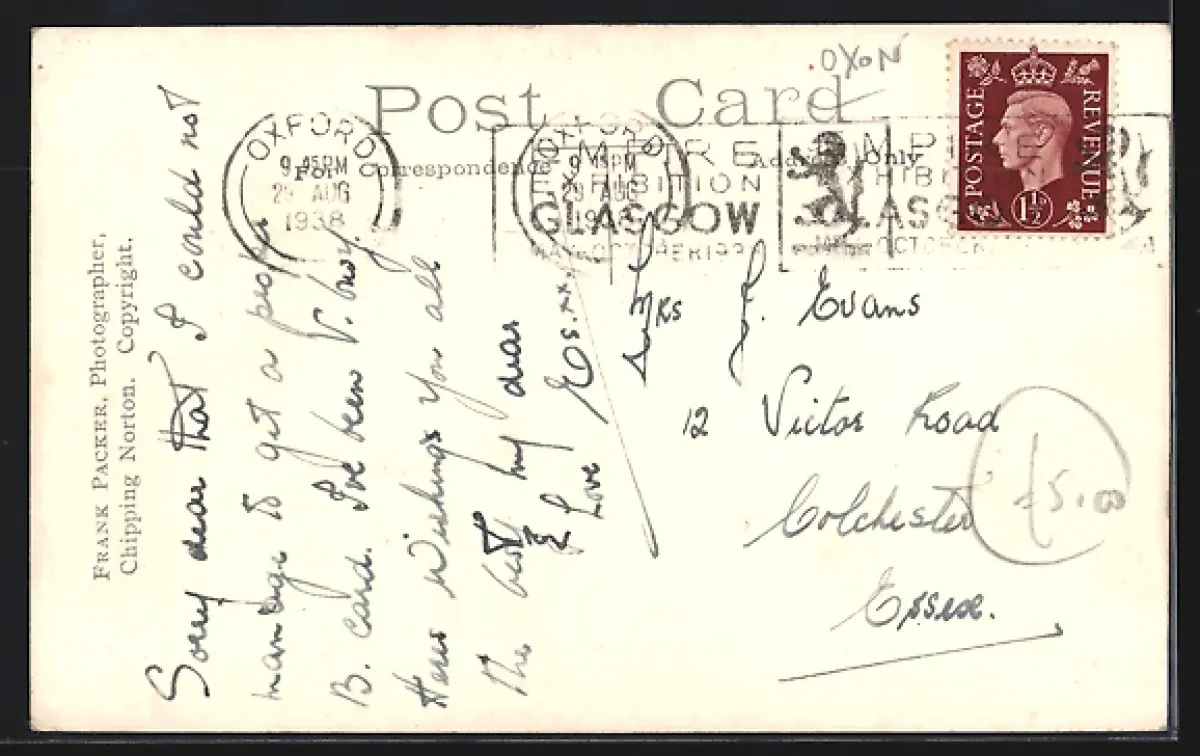 OXON
Post Card
For Correspondence
Address Only
OXFORD
9 45 PM
29 AUG
1938
OXFORD
9 45 PM
29 AUG
19
EMPIRE
EXHIBITION
GLASGOW
MAY-OCTOBER 1938
EMPIRE
EXHIBITION
GLASGOW
OCTOBER
POSTAGE
REVENUE
1½
FRANK PACKER, Photographer,
Chipping Norton. Copyright.
Sorry dear that I could not
manage to get a proper
B. Card. I've been V. busy.
Heres wishings you all
the best my dear
& Love
Es. xx.
Mrs J. Evans
12 Victor Road
Colchester
Essex.
£5.00